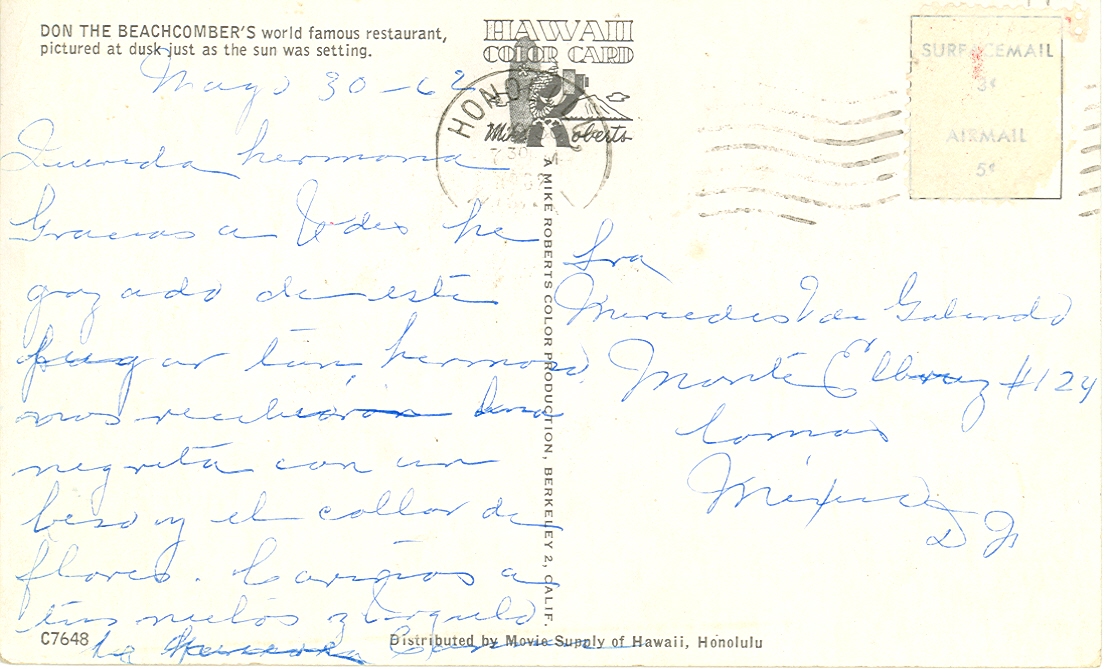 DON THE BEACHCOMBER'S world famous restaurant,
pictured at dusk just as the sun was setting.
HAWAII
COLOR CARD
Mike Roberts
HONO
A MIKE ROBERTS COLOR PRODUCTION, BERKELEY 2, CALIF.
SURFACEMAIL
3¢
AIRMAIL
5¢
Mayo 30-62
Querida hermana
Gracias a Vdes he
gozado de este
lugar tan hermoso,
nos recibieron una
negrita con un
beso y el collar de
flores. Cariños a
tus nietos y
la
Sra
Mercedes V de Galindo
Monte Elbruz #124
Lomas
México
D F
C7648
Distributed by Movie Supply of Hawaii, Honolulu